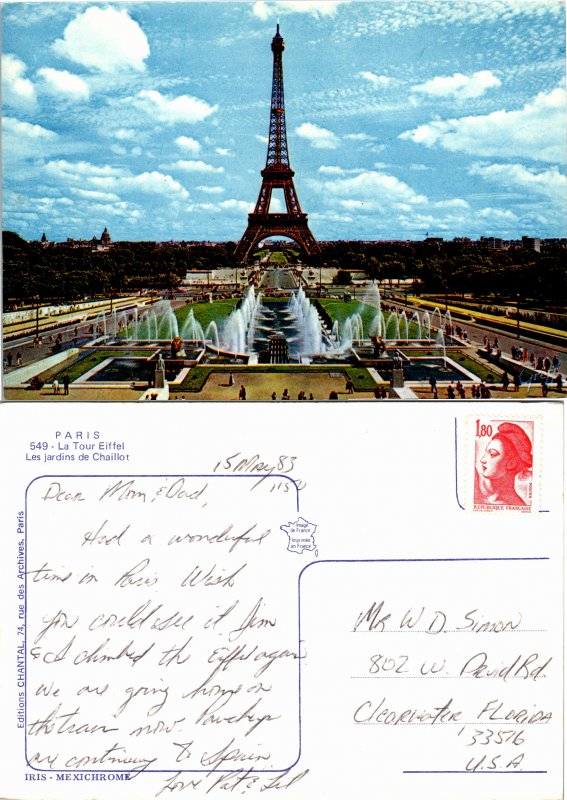 PARIS
549 - La Tour Eiffel
Les jardins de Chaillot
15 May 83
1150
1,80
POSTES
REPUBLIQUE FRANÇAISE
Image
de France
Imprimée
en France
Editions CHANTAL, 74, rue des Archives, Paris
Dear Mom & Dad,
Had a wonderful
time in Paris Wish
you could see it. Jim
& I climbed the Eiffel again
We are going home on
the train now.
are continuing to Spain.
Love Pat &
Mr W D. Simon
802 W. David Rd.
Clearwater Florida
33516
U.S.A.
IRIS - MEXICHROME